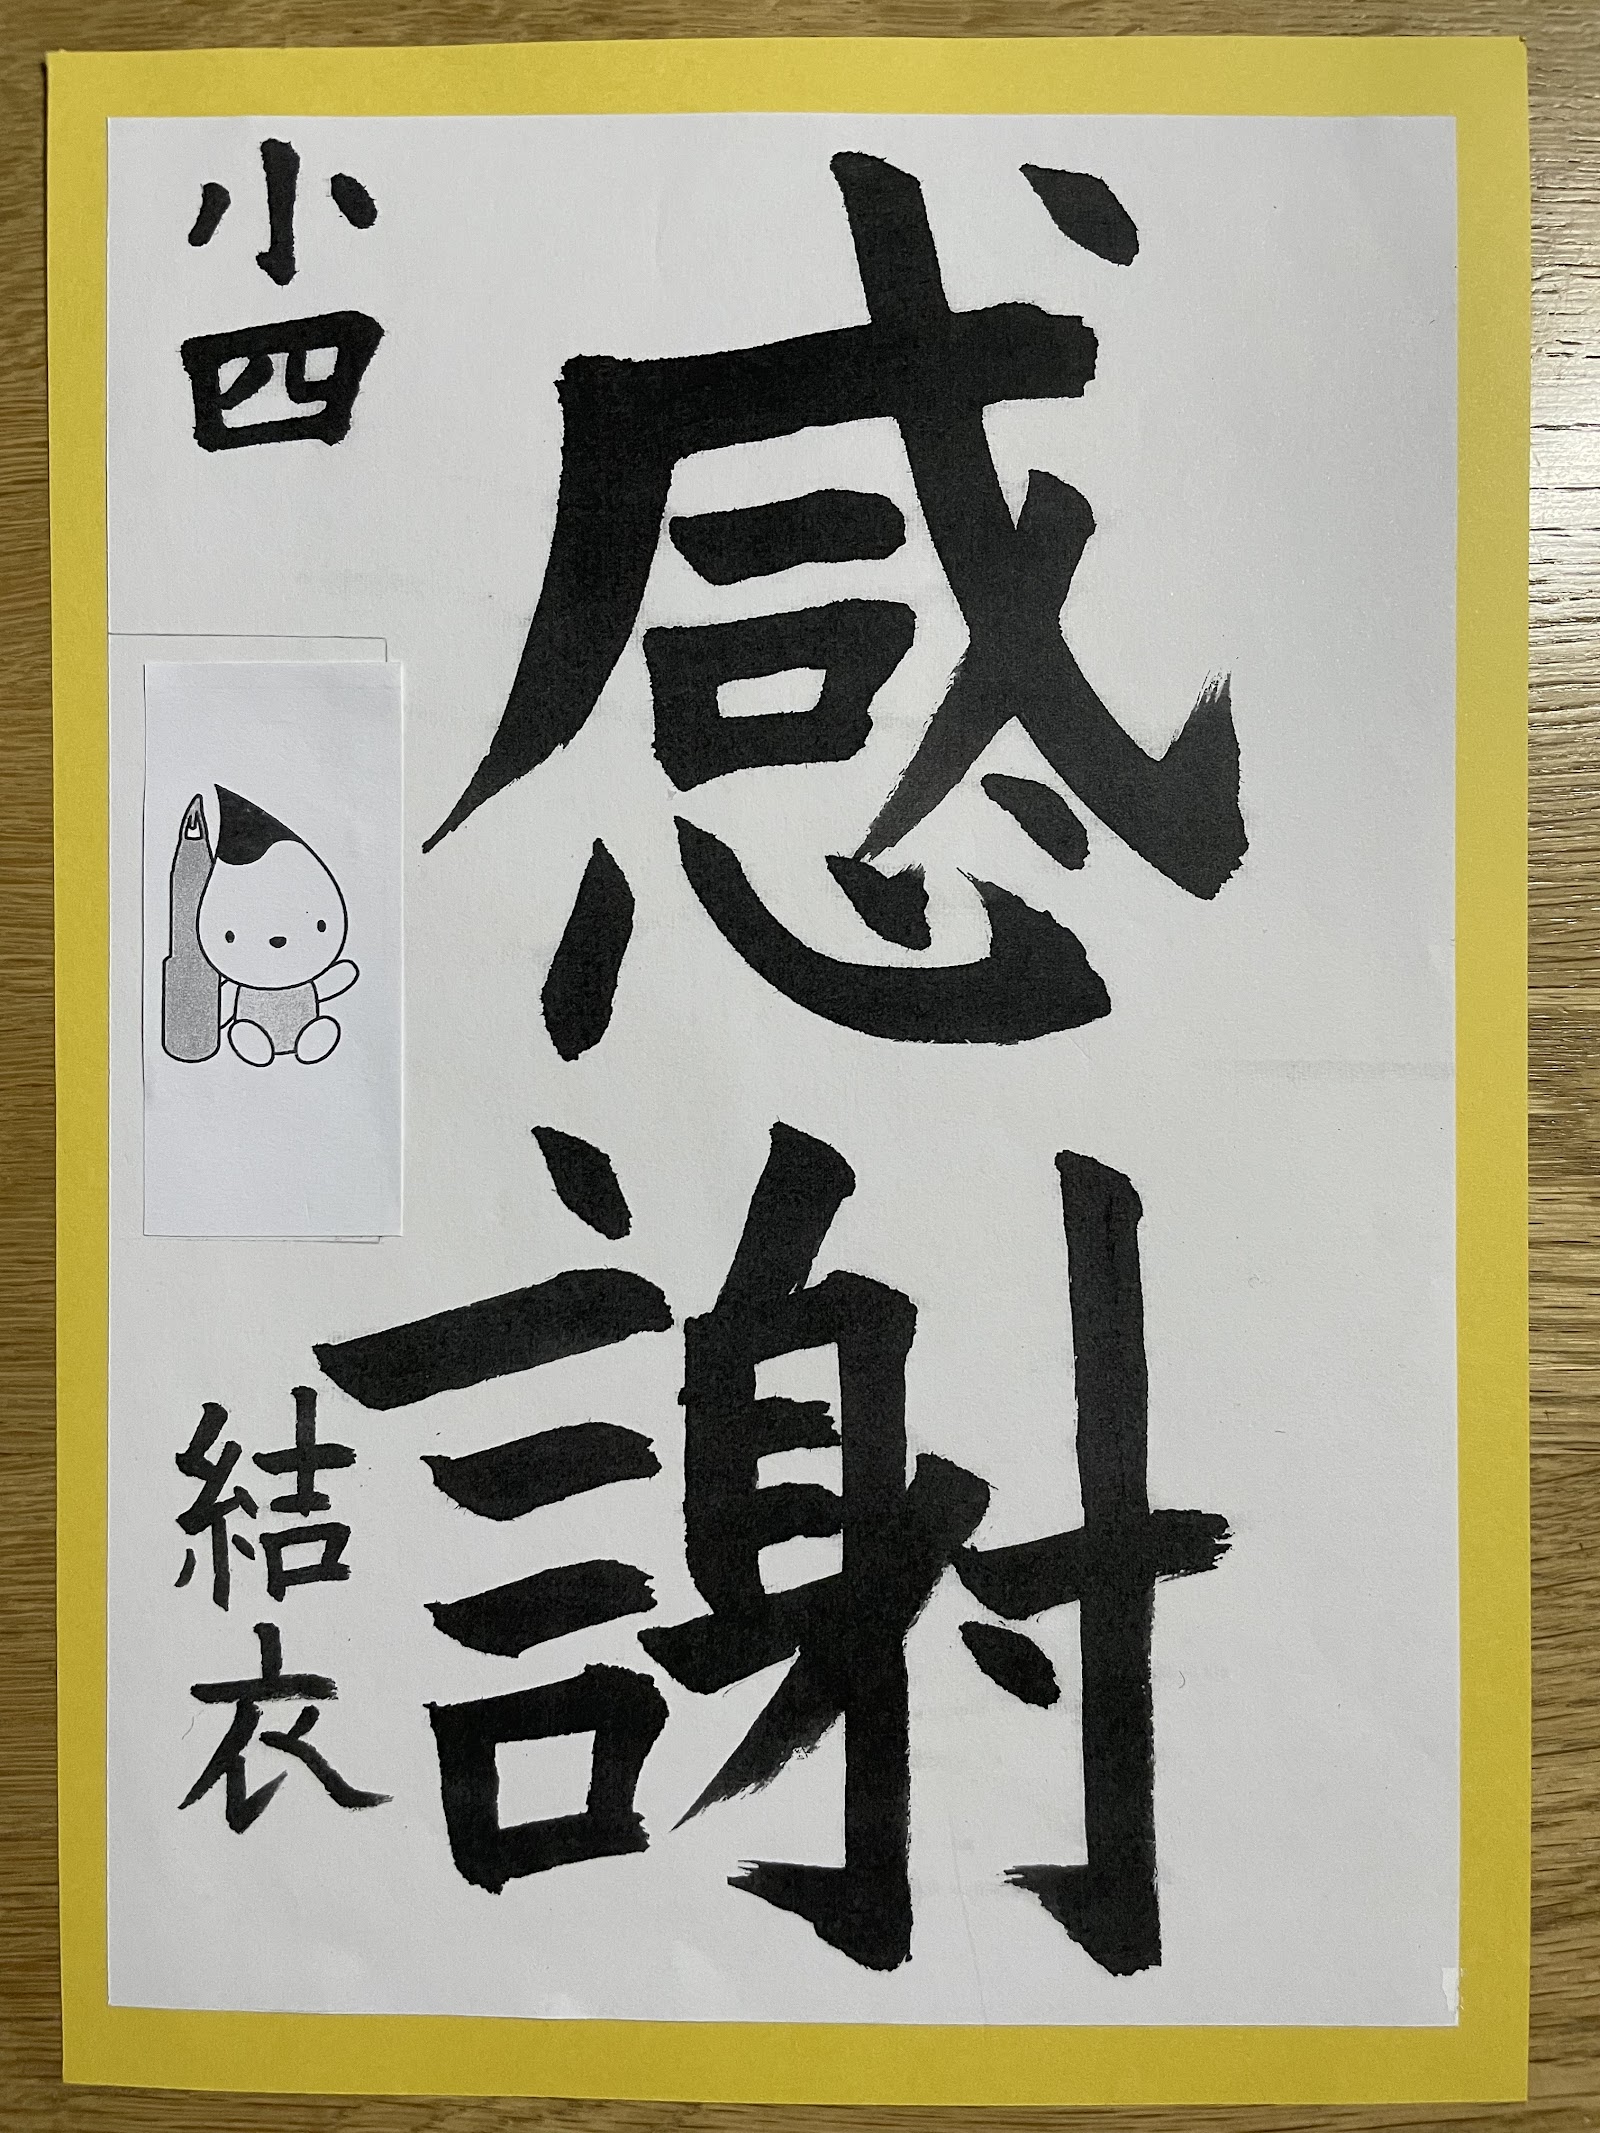 感謝
小四 結衣